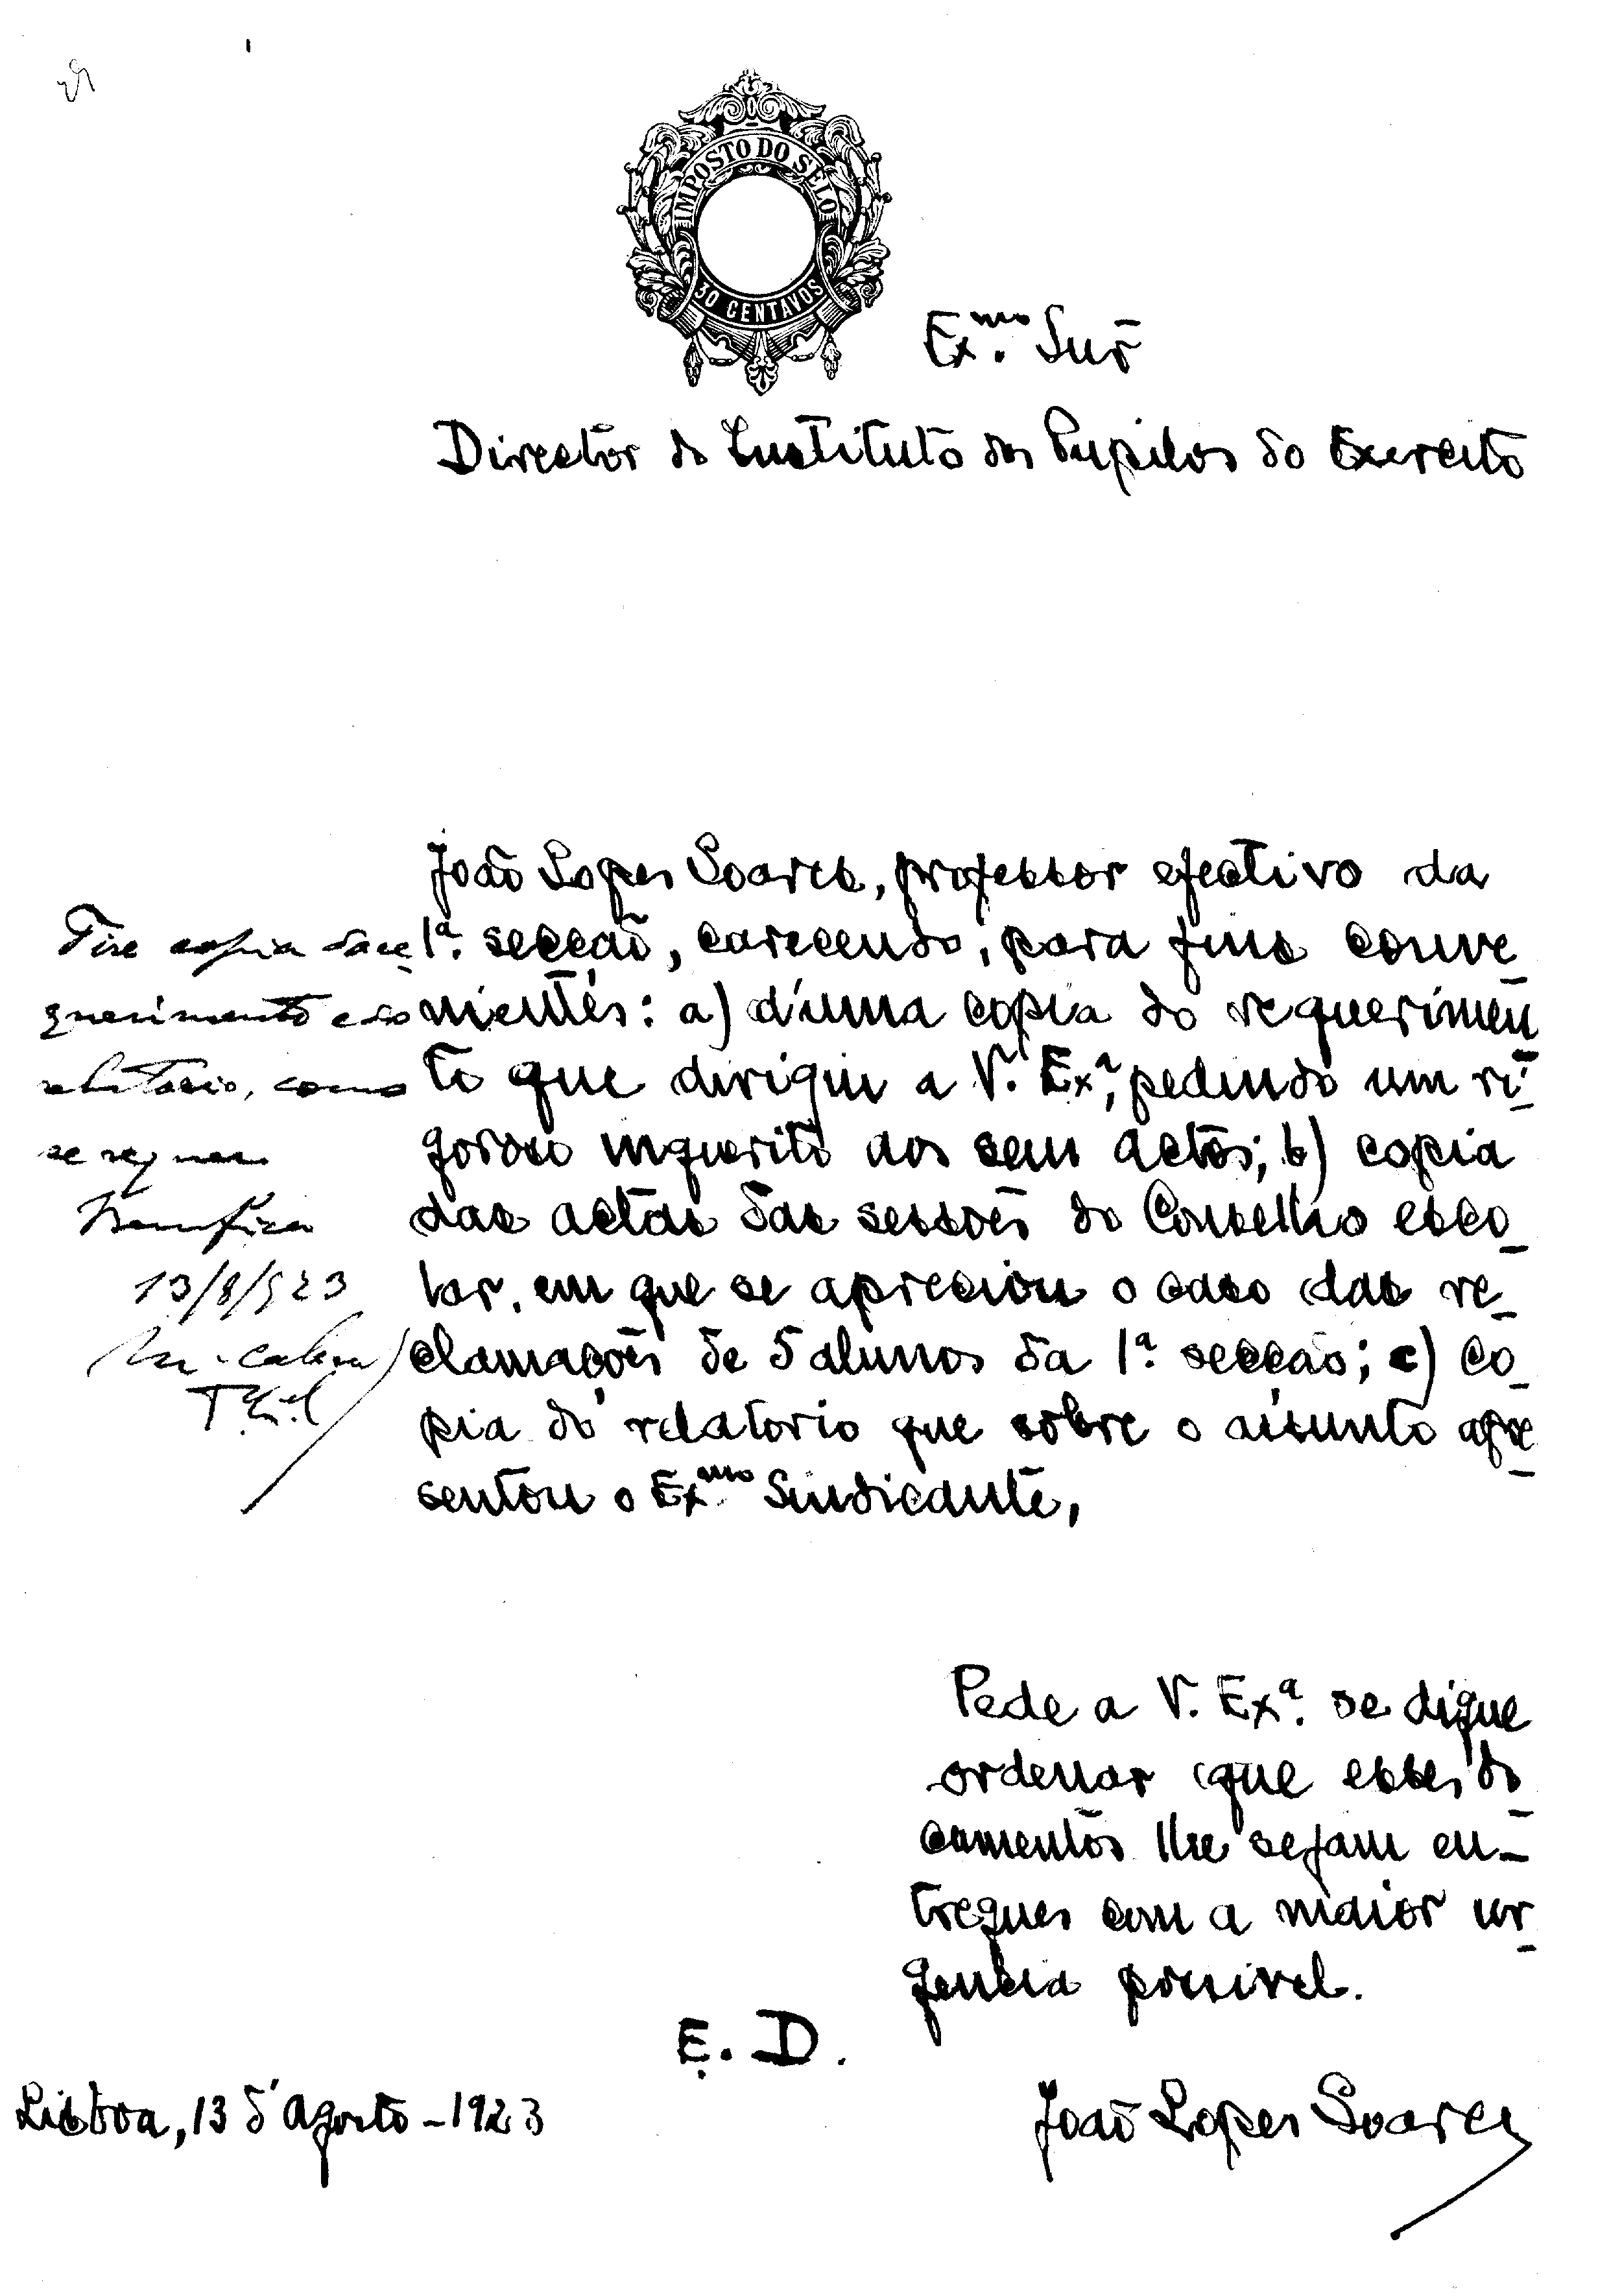 IMPOSTO DO SELO
30 CENTAVOS
Ex.mo Snr
Director do Instituto dos Pupilos do Exercito
João Lopes Soares, professor efectivo da
1ª. secção, carecendo, para fins conve-
nientes: a) d'uma copia do requerimen-
to que dirigiu a V. Exª, pedindo um ri-
goroso inquerito aos seus actos; b) copia
das actas das sessões do Conselho esco-
lar, em que se apreciou o caso das re-
clamações de 5 alunos da 1ª. secção; c) co-
pia do relatorio que sobre o assunto apre-
sentou o Exmo Sindicante,
Tire copia
querimento e do
relatorio, como
se requer
Bemfica
13/8/923
Pede a V. Exª. se digne
ordenar que esses do-
cumentos lhe sejam en-
tregues com a maior ur-
gencia possivel.
E. D.
Lisboa, 13 d'Agosto - 1923
João Lopes Soares